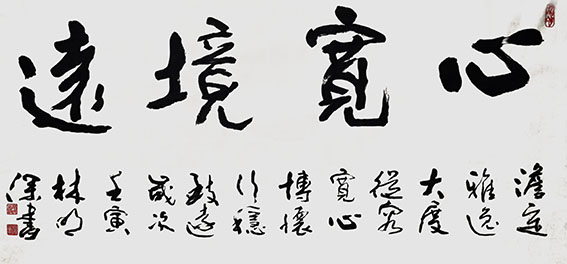 心寬境遠
澹定
雅逸
大度
從容
寬心
博懷
行穩
致遠
歲次
壬寅
林明
深書